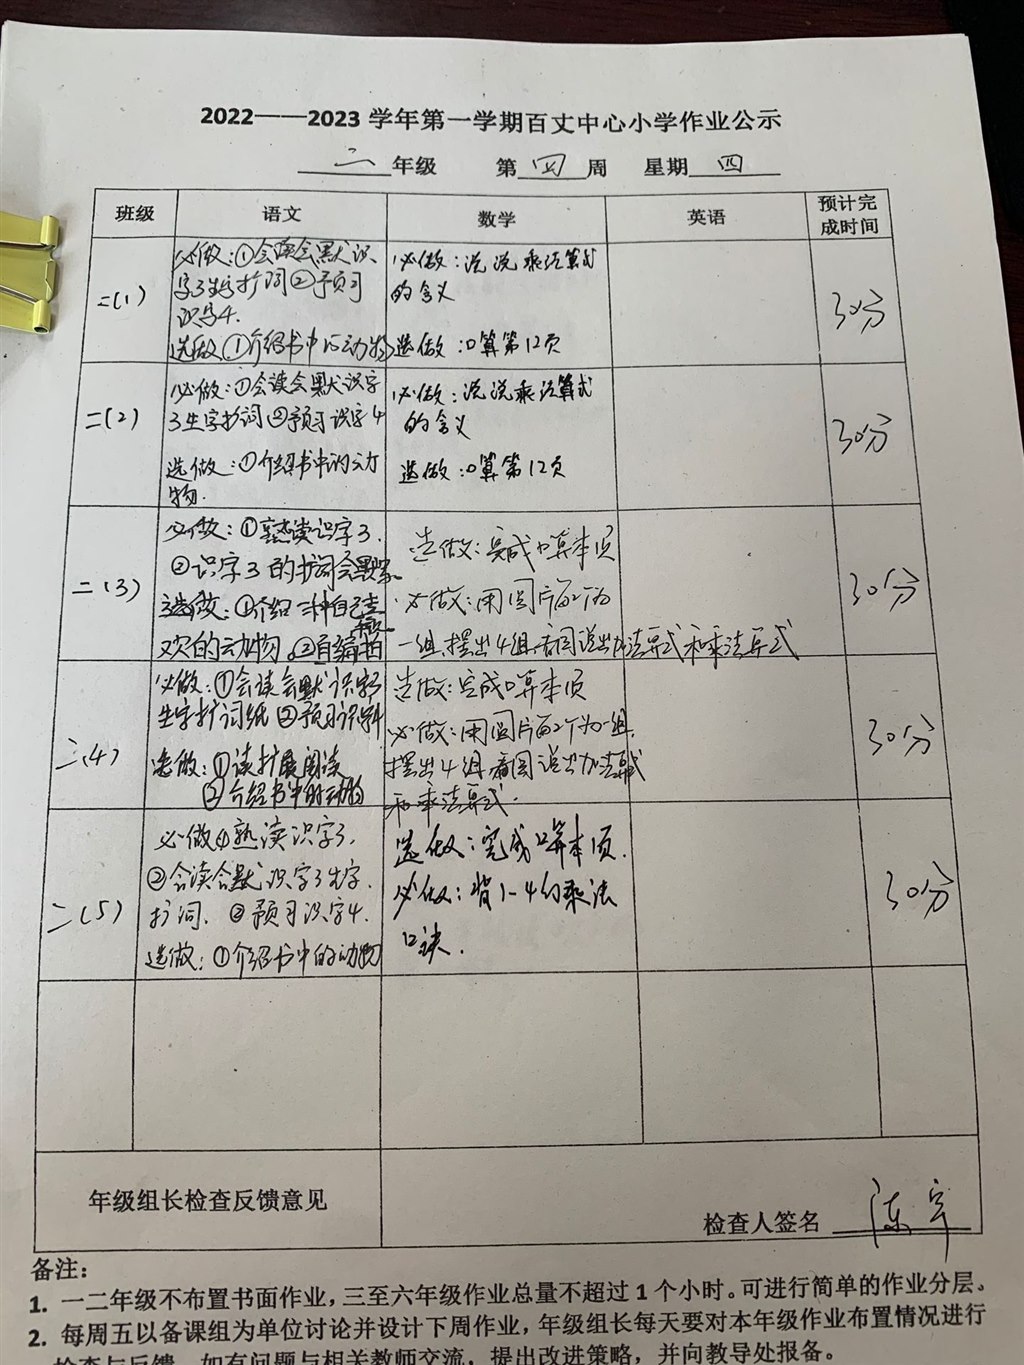 2022——2023 学年第一学期百丈中心小学作业公示
二 年级 第 四 周 星期 四
班级 语文 数学 英语 预计完成时间
二(1)
必做:①会读会默识
字3生字扩词②预习
识字4.
选做①介绍书中的动物
必做:说说乘法算式
的含义
选做:口算第12页
30分
二(2)
必做:①会读会默识字
3生字扩词②预习识字4
选做:①介绍书中的动
物.
必做:说说乘法算式
的含义
选做:口算第12页
30分
二(3)
必做:①熟读识字3.
②识字3的扩词会默写.
选做:①介绍一种自己喜
欢的动物.②自编拍
选做:完成口算本页
必做:用圆片每2个为
一组,摆出4组,看图说出加法算式和乘法算式
30分
二(4)
必做:①会读会默识字3
生字扩词纸②预习识字4
选做:①读扩展阅读
②介绍书中的动物
选做:完成口算本页
必做:用圆片每2个为一组.
摆出4组,看图说出加法算式
和乘法算式.
30分
二(5)
必做①熟读识字3.
②会读会默识字3生字.
扩词. ③预习识字4.
选做:①介绍书中的动物
选做:完成口算本页.
必做:背1-4的乘法
口诀.
30分
年级组长检查反馈意见
检查人签名
备注:
1. 一二年级不布置书面作业,三至六年级作业总量不超过 1 个小时。可进行简单的作业分层。
2. 每周五以备课组为单位讨论并设计下周作业,年级组长每天要对本年级作业布置情况进行
检查与反馈,如有问题与相关教师交流,提出改进策略,并向教导处报备。